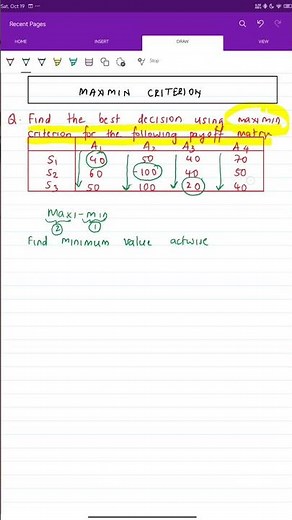 Sat, Oct 19
Recent Pages
HOME INSERT DRAW VIEW
Stop
MAXMIN CRITERION
Q. Find the best decision using maxmin
criterion for the following payoff matrix
A1 A2 A3 A4
S1 40 50 40 70
S2 60 -100 40 50
S3 50 100 20 40
Maxi-min
② ①
Find minimum value actwise